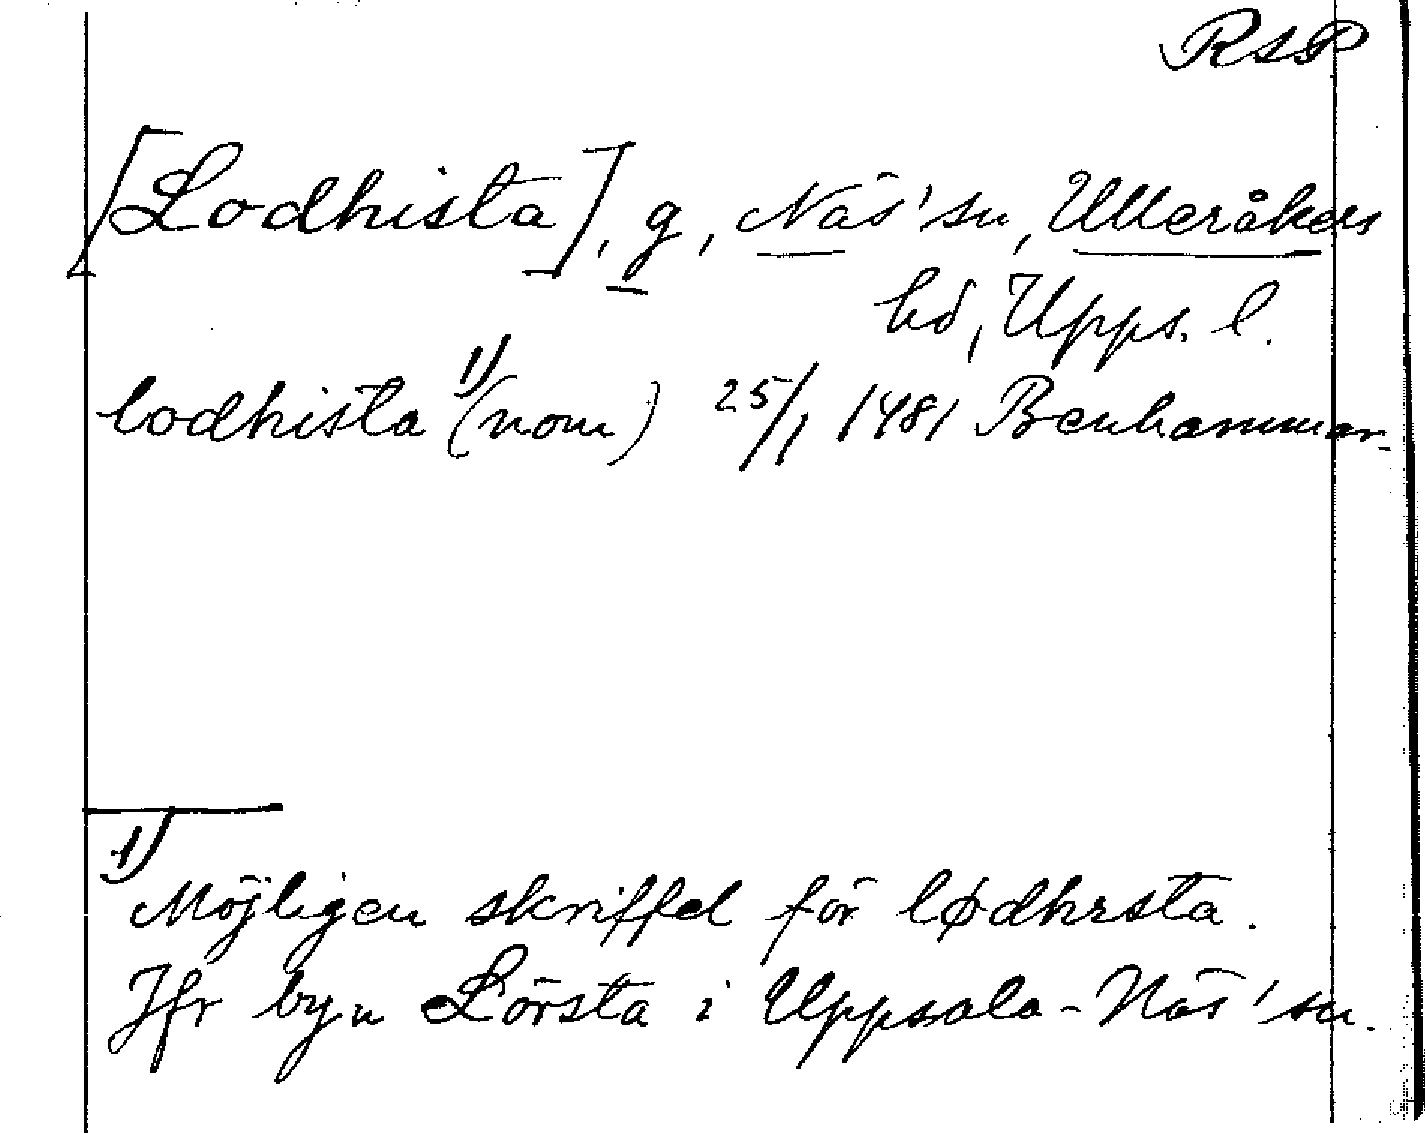 RSP
[Lodhista], g, Näs' sn, Ulleråkers
hd, Upps. l.
lodhista 1) (nom) 25/1 1481 Benhammar.
1)
Möjligen skriffel för lødhrsta.
Jfr byn Lörsta i Uppsala-Näs' sn.